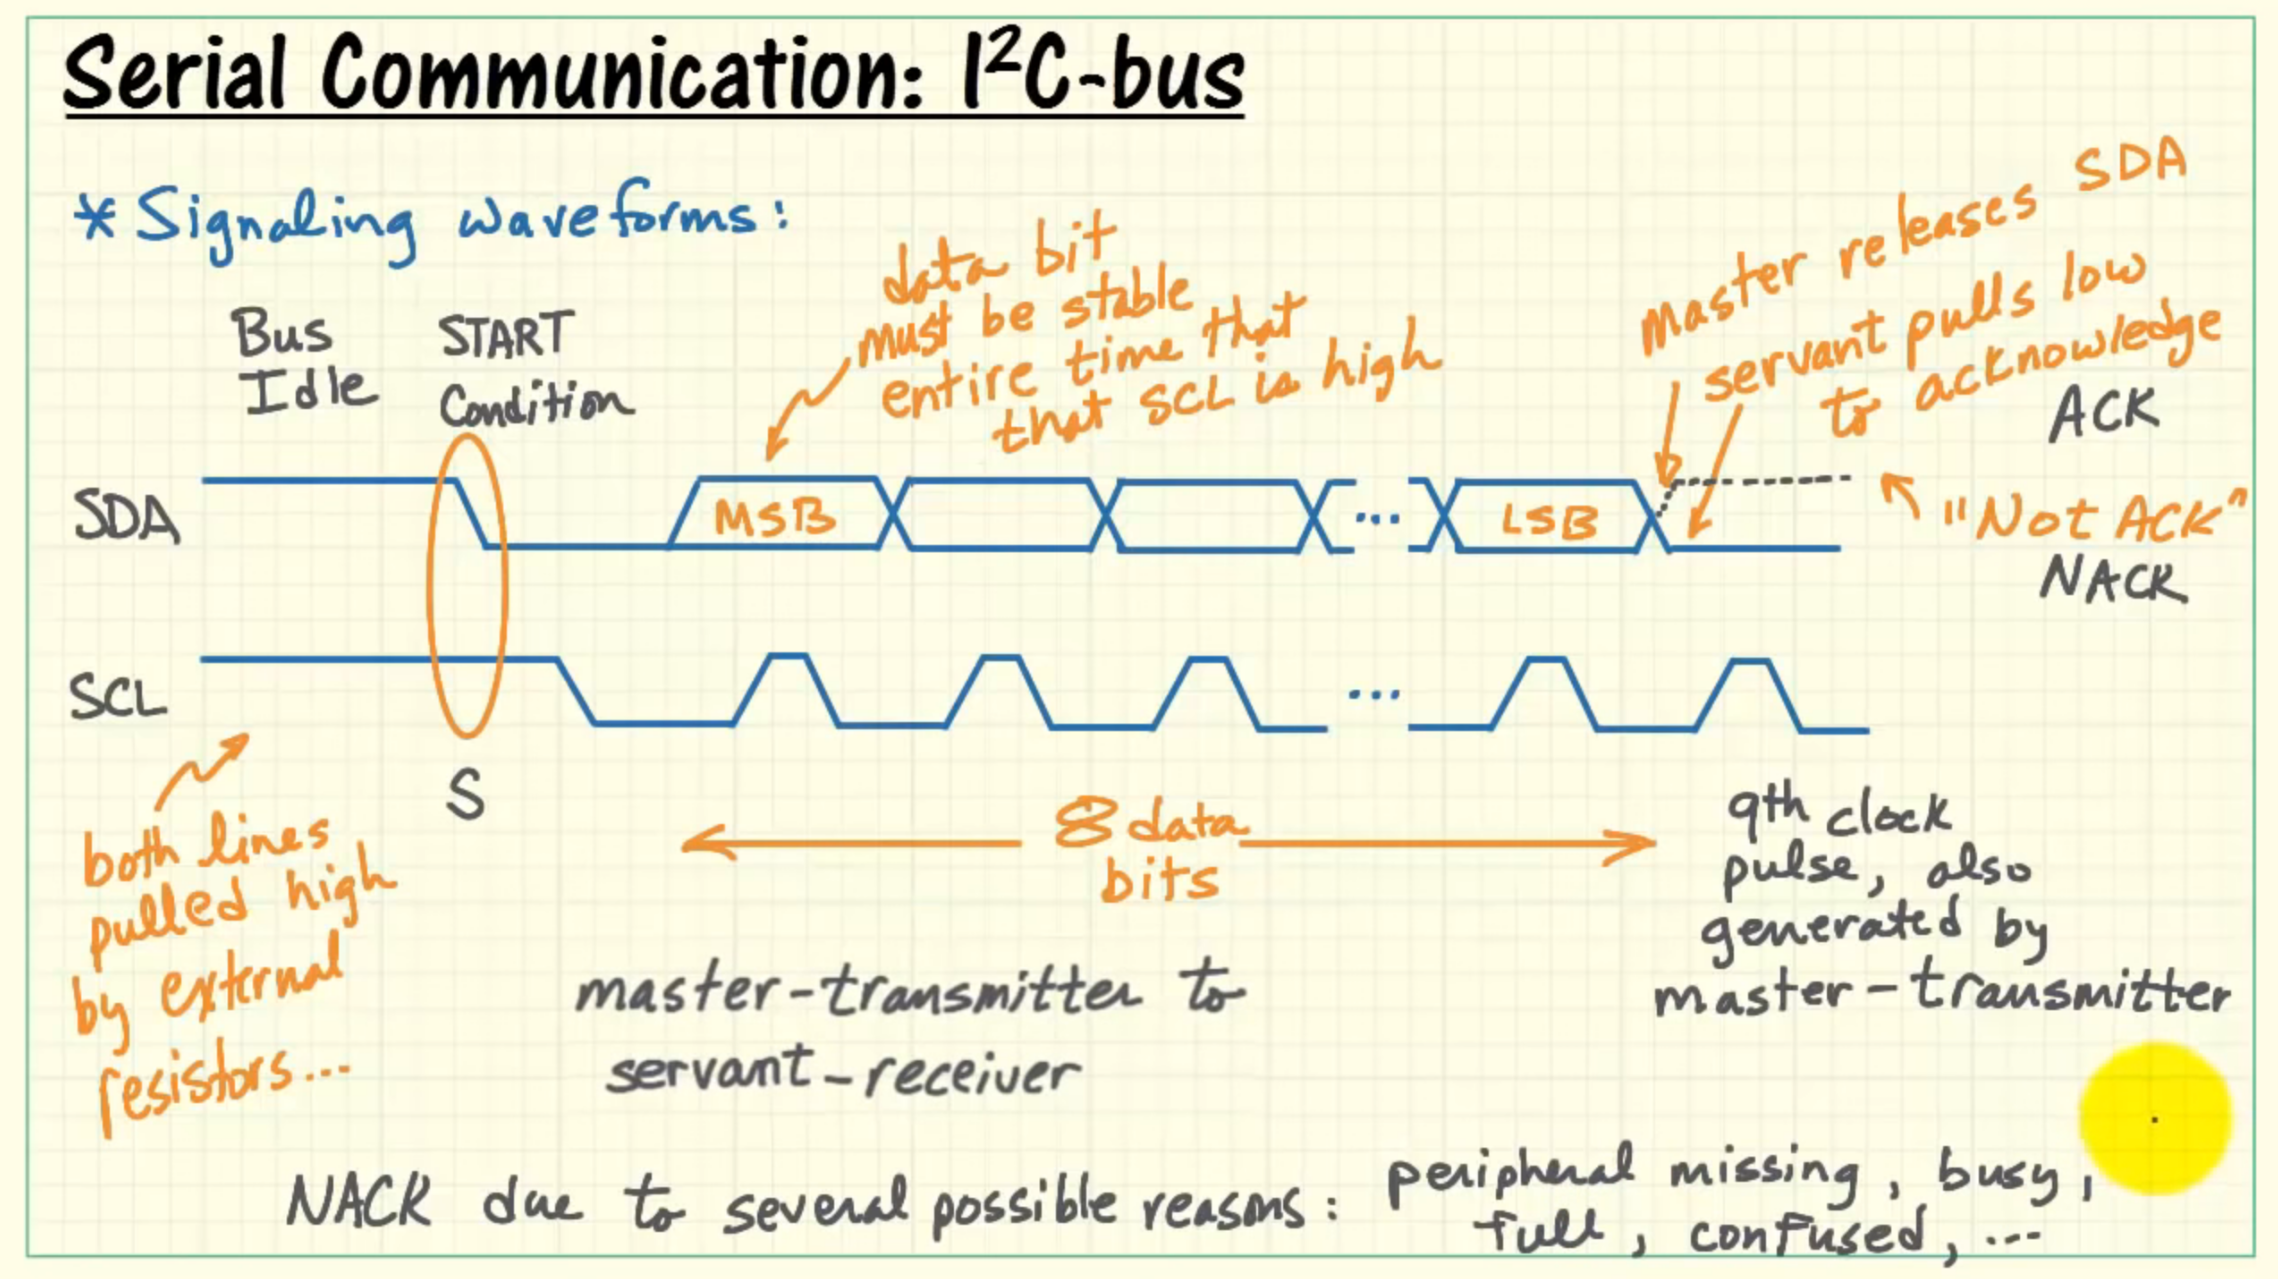 Serial Communication: I²C-bus
* Signaling waveforms:
Bus
Idle
START
Condition
data bit
must be stable
entire time that
that SCL is high
master releases SDA
servant pulls low
to acknowledge
ACK
"Not ACK"
NACK
SDA
MSB
...
LSB
SCL
...
S
both lines
pulled high
by external
resistors...
8 data
bits
9th clock
pulse, also
generated by
master-transmitter
master-transmitter to
servant-receiver
NACK due to several possible reasons: peripheral missing, busy,
full, confused, ...